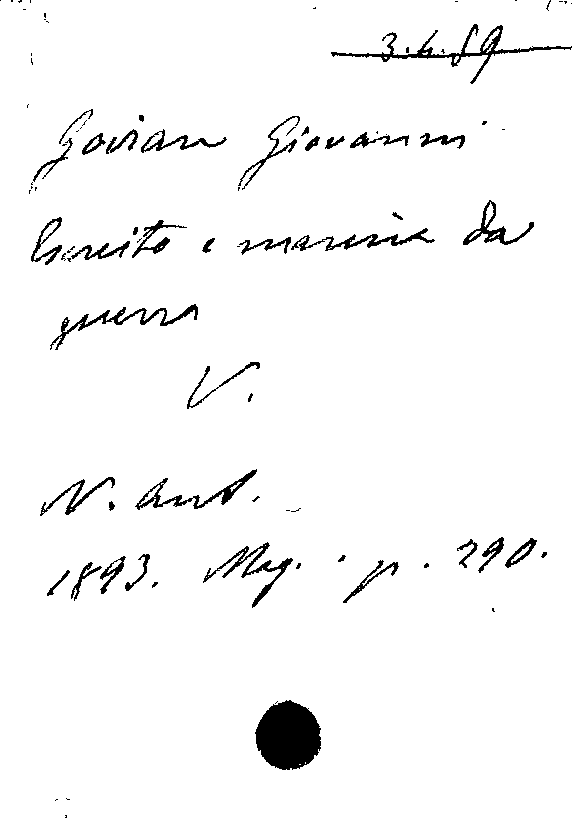 3.4.89
Goiran Giovanni
Esercito e marina da
guerra
V.
N. Ant.
1893. Mag. p. 290.